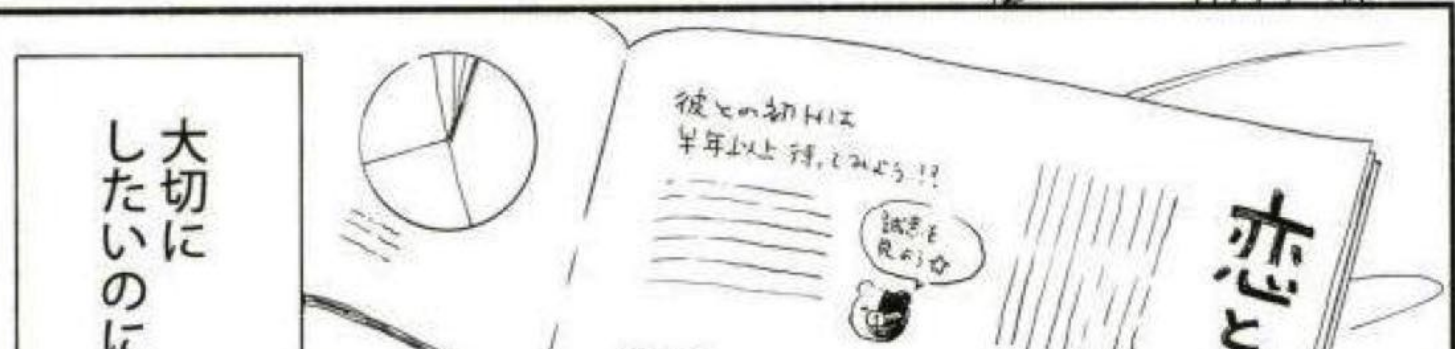 恋と
彼との初Hは
半年以上待ってみよう!?
誠意を
見よう☆
大切に
したいのに